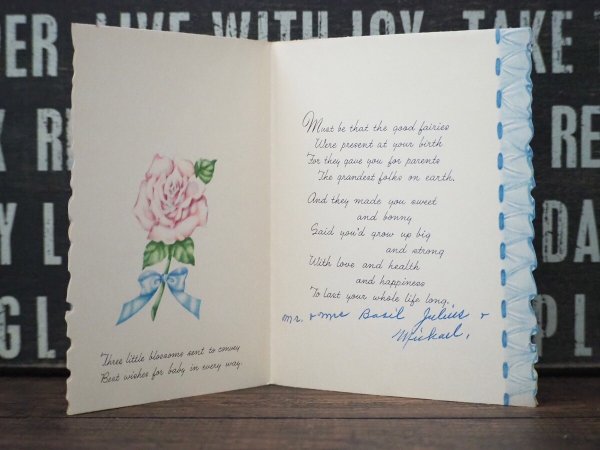 PER LIVE WITH JOY, TAKE
RE
Three little blossoms sent to convey
Best wishes for baby in every way.
Must be that the good fairies
Were present at your birth
For they gave you for parents
The grandest folks on earth.
And they made you sweet
and bonny
Said you'd grow up big
and strong
With love and health
and happiness
To last your whole life long.
Mr. & Mrs Basil Julius &
Mickael.